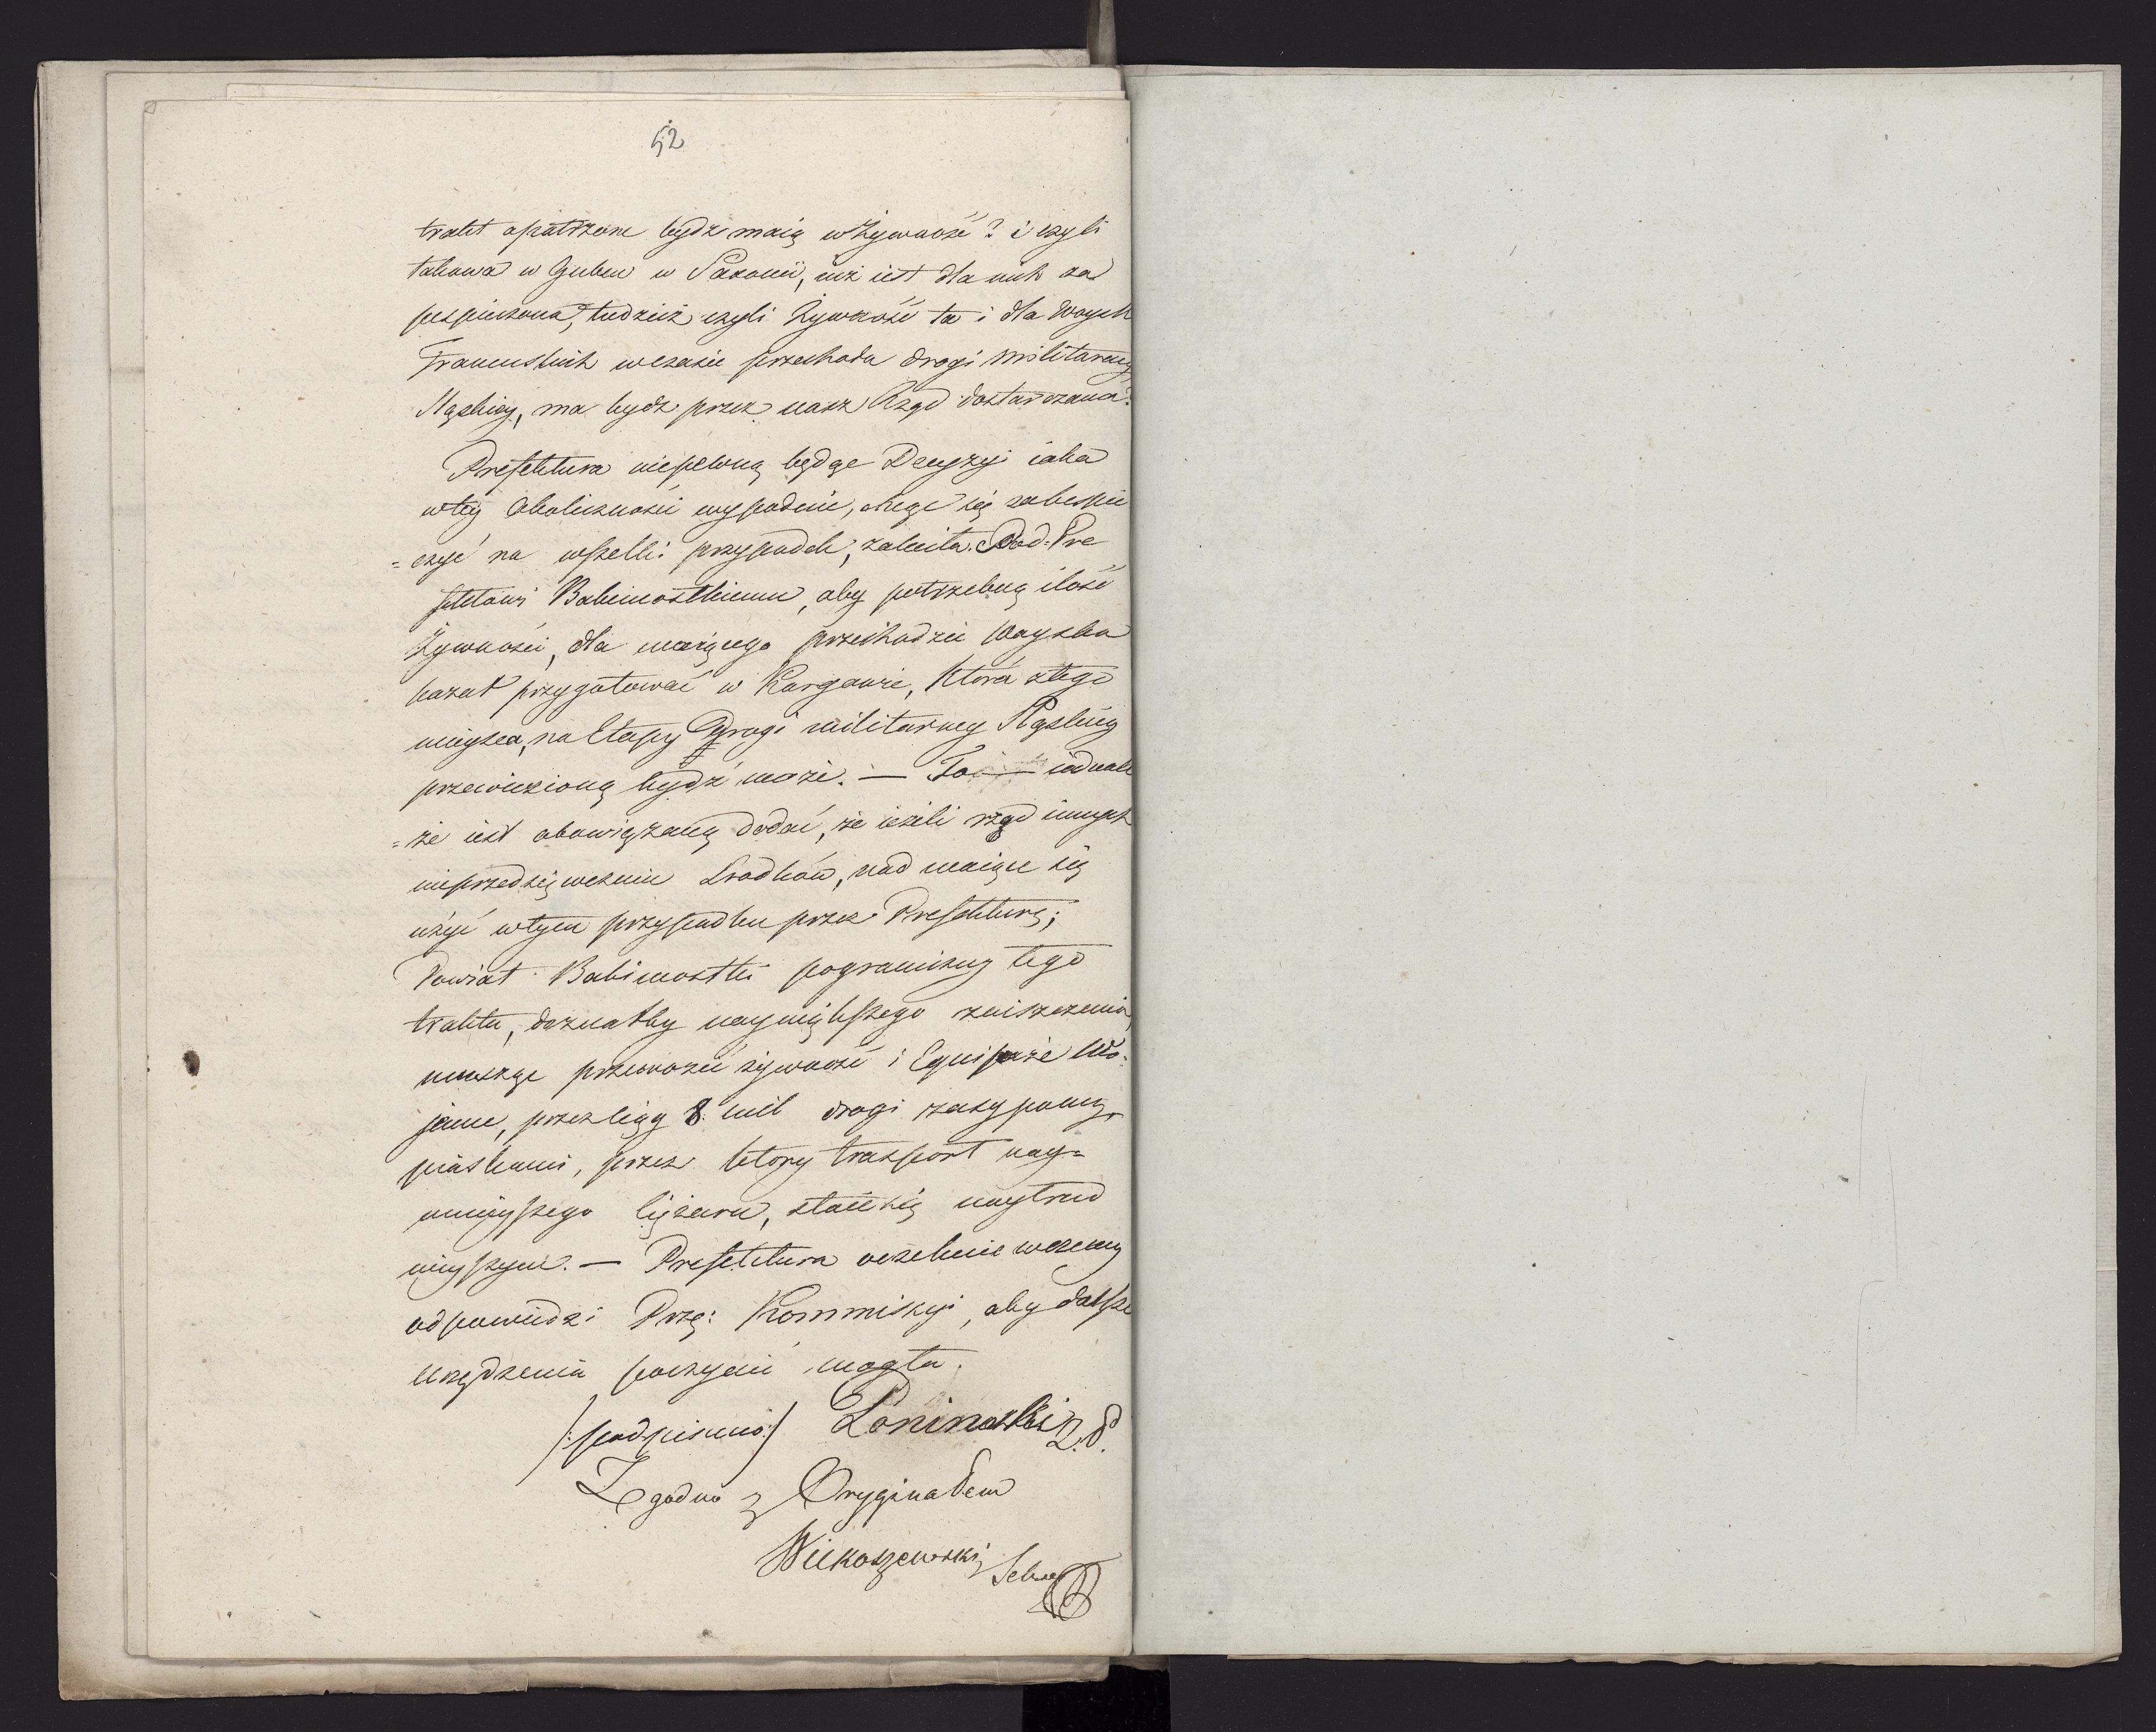 52
trakt opatrzone bydz maią w żywność? i czyli
takowa w Guben w Saxonii, iuż iest dla nich za
pespieczona, tudzież czyli żywność ta i dla Woysk
Francuskich wczasie przechodu drogi militarney
Sląskiey, ma bydz przez nasz Rząd dostarczana?
Prefektura niepewną będąc Decyzyi iaka
wtey Okoliczności wypadnie, chcąc się zabespie
=czyć na wszelki przypadek, zaleciła Pod-Pre
fektowi Babimostkiemu, aby potrzebną ilość
Żywności, dla maiącego przechodzić Woyska
kazał przygotować w Kargowie, która ztego
mieysca, na Etapy Drogi militarney Sląskiey
przewiezioną bydź może. — Ta iednak
=że iest obowiązaną dodać, że ieżeli rząd innych
nieprzedsięweźmie Srodków, nad maiące się
użyć wtym przypadku przez Prefekturę;
Powiat Babimostki pograniczny tego
traktu, doznałby naywiększego zniszczenia,
musząc przewozić żywność i Equipaże Wo=
jenne, przez ligę 8. mil drogi zasypaney
piaskami, przez który transport nay=
mnieyszego ciężaru, staie się naytrud
nieyszym. — Prefektura oczekuie wczesney
odpowiedzi Prze: Kommissyi, aby dalsze
urządzenia poczynić mogła.
/:podpisano:/ Poninski Z.P.
Zgodno z Oryginałem
Wiekoszewski Sekre